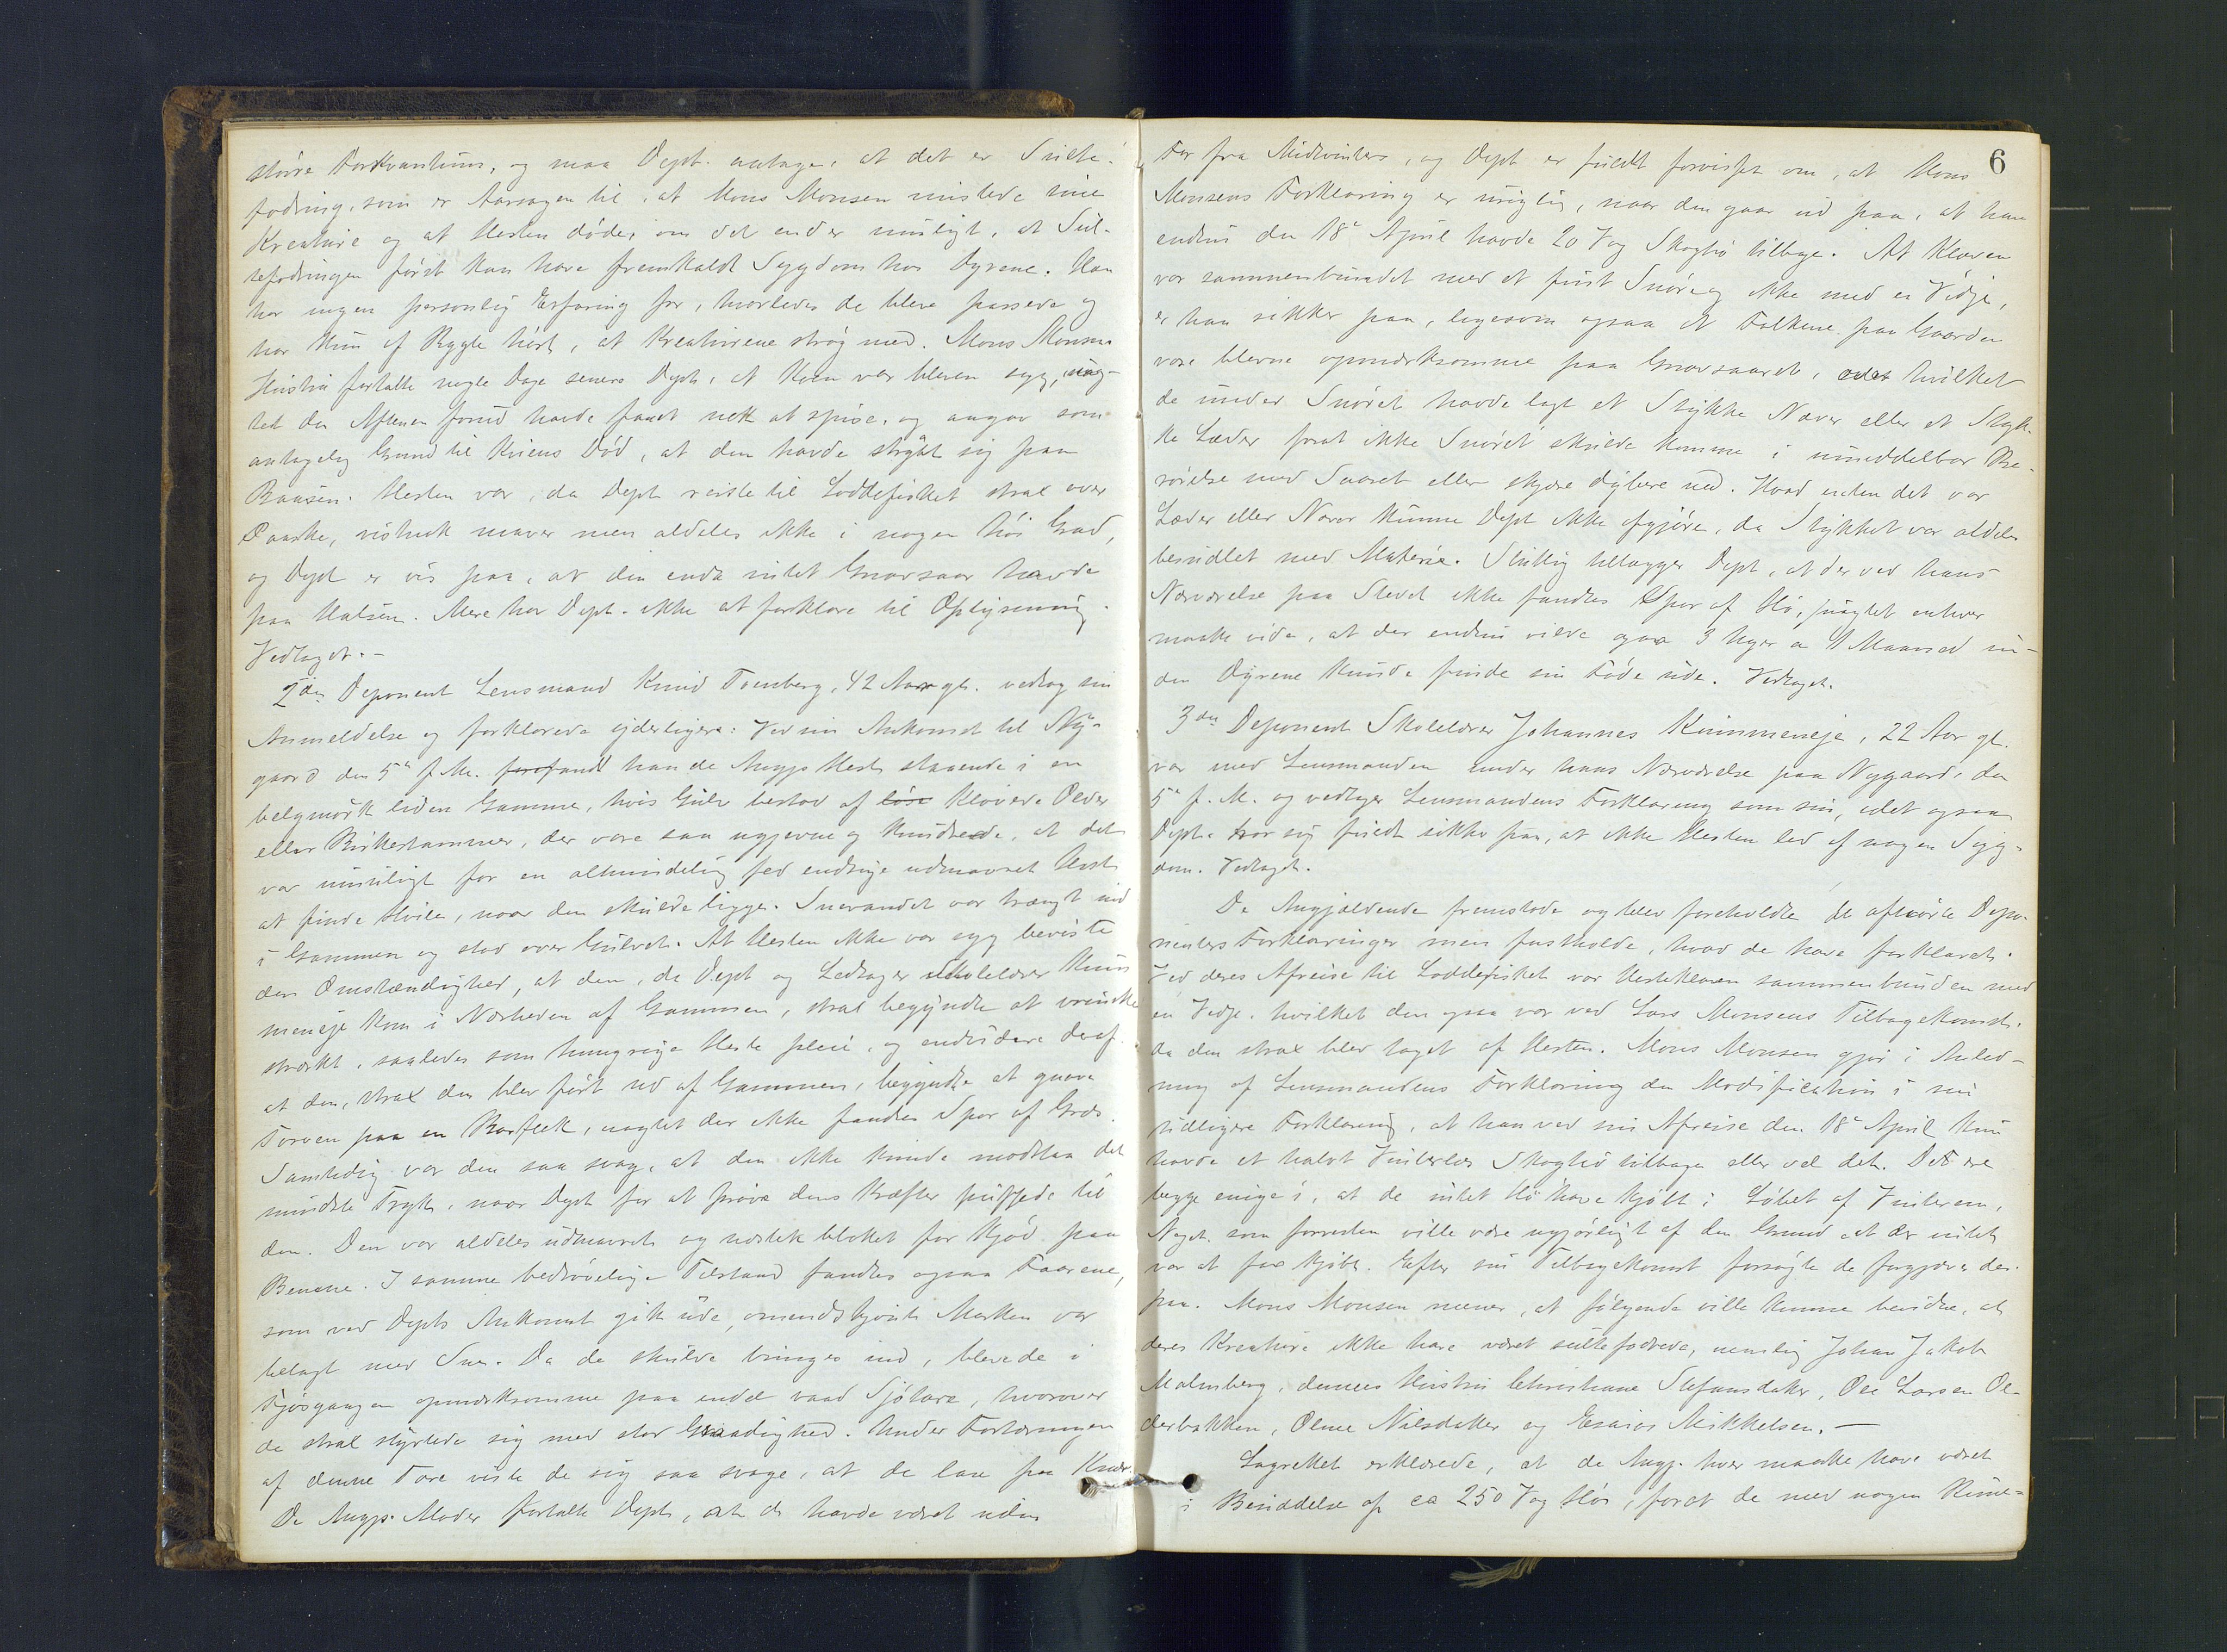 större Forkvantum, og maa Dept. antage, at det er Sulte-
fodring, som er Aarsagen til, at Mons Monsen mistede sine
Kreature og at Hesten døde, om det end er muligt, at Sul-
tefodringen først kan have fremkaldt Sygdom hos Dyrene. Han
har ingen personlig Erfaring for, hvorledes de bleve passede og
har kun af Rygte hørt, at Kreaturene strøg med. Mons Monsens
Hustru fortalte nogle Dage senere Dept., at Koen var bleven syg, uag-
tet den Aftenen forud havde faaet nok at spise, og angav som
antagelig Grund til Kviens Død, at den havde strygt sig paa
Baasen. Hesten var, da Dept reiste til Loddefisket strax over
Paaske, vistnok maver men aldeles ikke i nogen høi Grad,
og Dept er vis paa, at den enda intet Gnavsaar havde
paa Halsen. Mere har Dept. ikke at forklare til Oplysning.
Vedtaget.-
2den Deponent Lensmand Knud Trenberg, 42 Aar gl. vedtog sin
Anmeldelse og forklarede yderligere: Ved sin Ankomst til Ny-
gaard den 5te f. M. forefandt han de Angjs Hest staaende i en
belgmørk liden Gamme, hvis Gulv bestod af løse kløvede Older
eller Birkestammer, der vare saa ugjevne og knudrede, at det
var umuligt for en almindelig fed endsige udmavret Hest
at finde Hvile, naar den skulde ligge. Snevandet var trængt ind
i Gammen og stod over Gulvet. At Hesten ikke var syg beviste
den Omstændighed, at den, da Dept og Ledsager Skolelærer Kuin
meneje kom i Nærheden af Gammen, strax begyndte at vrinske
stærkt, saaledes som hungrige Heste pleie, og endvidere deraf
at den, strax den blev ført ud af Gammen, begyndte at gnave
Torven paa en Barflek, uagtet der ikke fandtes Spor af Græs.
Samtidig var den saa svag, at den ikke kunde modstaa det
mindste Tryk, naar Dept for at prøve dens Kræfter puffede til
den. Den var aldeles udmavret og næsten blottet for Kjød paa
Benene. I samme bedrøvelige Tilstand fandtes ogsaa Faarene,
som ved Depts Ankomst gik ude, omendskjønt Marken var
belagt med Sne. Da de skulde bringes ind, bleve de i
Fjøsgangen opmærksomme paa endel vaad Sjøtare, hvorover
de strax styrtede sig med stor Graadighed. Under Fortæringen
af denne Tare viste de sig saa svage, at de laa paa Knæ.
De Angjs. Moder fortalte Dept, at de havde været uden
6
For fra Midvinters, og Dept er fuldt forvisset om, at Mons
Monsens Forklaring er urigtig, naar den gaar ud paa, at han
endnu den 18de April havde 20 Vog Skoghø tilbage. At Klaven
var sammenbundet med et fint Snøre og ikke med en Vidje,
er han sikker paa, ligesom ogsaa at Folkene paa Gaarden
vare blevne opmærksomme paa Gnavsaaret, hvilket
de under Snøret havde lagt et Stykke Næver eller et Styk-
ke Læder forat ikke Snøret skulde komme i umiddelbar Be-
rørelse med Saaret eller skjære dybere ned. Hvad enten det var
Læder eller Næver kunne Dept ikke afgjøre, da Stykket var aldeles
besudlet med Materie. Sluttig tillægger Dept, at der ved hans
Nærværelse paa Stedet ikke fandtes Spor af Hø, uagtet enhver
maatte vide, at der endnu vilde gaa 3 Uger a 1 Maaned in-
den Dyrene kunde finde sin Føde ude. Vedtaget.
3die Deponent Skolelærer Johannes Kuinmeneje, 22 Aar gl.
var med Lensmanden under hans Nærværelse paa Nygaard, den
5te f. M. og vedtager Lensmandens Forklaring som sin, idet ogsaa
Dept. tror sig fuldt sikker paa, at ikke Hesten led af nogen Syg-
dom. Vedtaget.
De Angjældende fremstode og blev foreholdte de afhørte Depo-
nenters Forklaringer men fastholde, hvad de have forklaret.
Ved deres Afreise til Loddefisket var Hesteklaven sammenbunden med
en Vidje, hvilket den ogsaa var ved Lars Monsens Tilbagekomst,
da den strax blev taget af Hesten. Mons Monsen gjør i Anled-
ning af Lensmandens Forklaring den Modification i sin
tidligere Forklaring, at han ved sin Afreise den 18de April kun
havde et halvt Vinterlæs Skoghø tilbage eller vel det. De ere
begge enige i, at de intet Hø have kjøbt i Løbet af Vinteren,
Noget som forresten ville være ugjørligt af den Grund at der intet
var at faa kjøbt. Efter sin Tilbagekomst forsøgte de forgjæves der-
paa. Mons Monsen mener, at følgende ville kunne bevidne, at
deres Kreature ikke have været sultefodrede, nemlig Johan Jakob
Malmberg, dennes Hustru Christiane Stefansdatter, Ole Larsen Ol-
derbakken, Oline Nilsdatter og Esaias Mikkelsen.-
Lagrettet erklærede, at de Angj. hver maatte have været
i Besiddelse af ca 250 Vog Hø, forat de med nogen Rime-